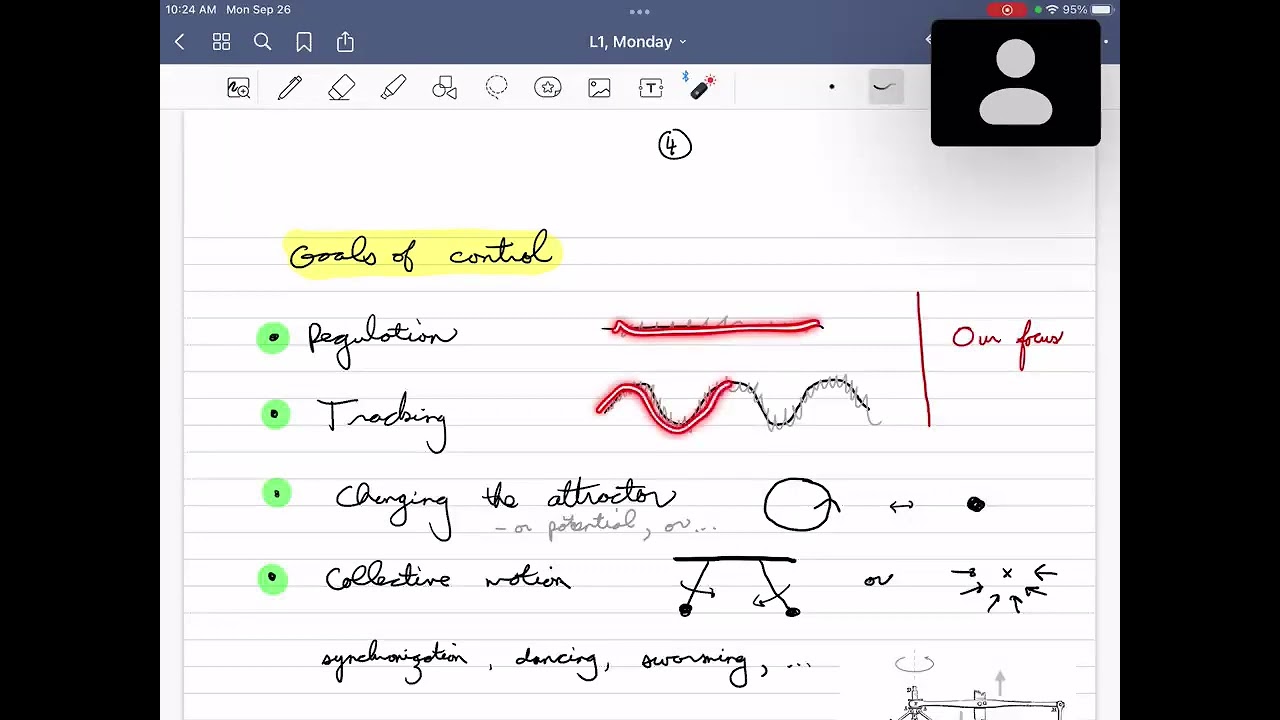 10:24 AM Mon Sep 26
95%
L1, Monday
T
4
Goals of control
Regulation
Our focus
Tracking
Changing the attractor
- or potential, or...
Collective motion
or
synchronization, dancing, swarming, ...